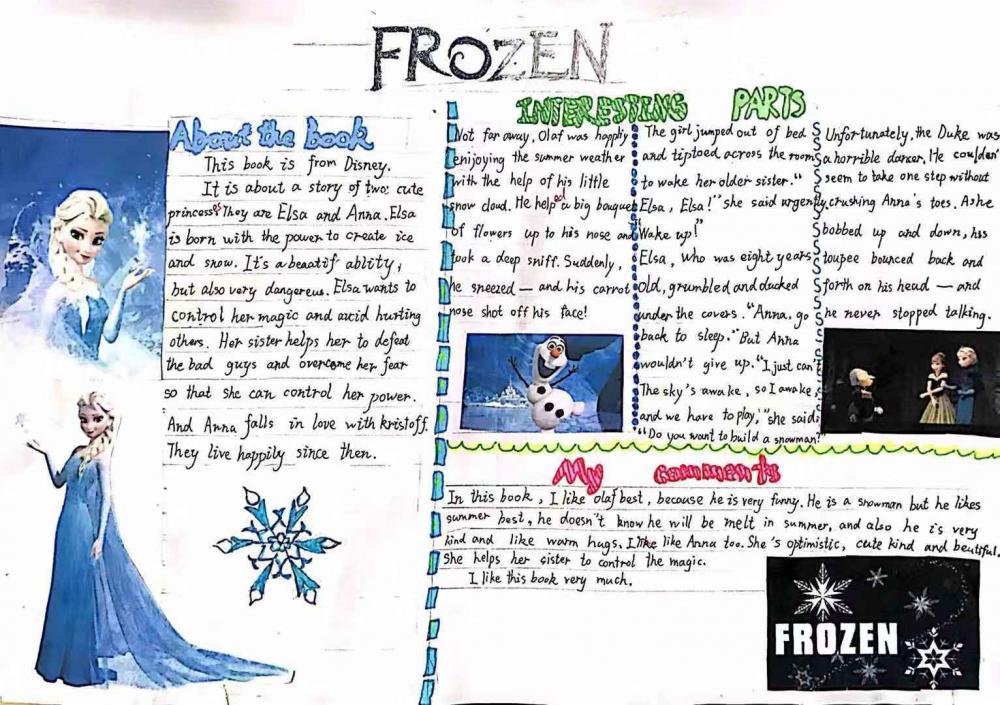 FROZEN
About the book
This book is from Disney.
It is about a story of two cute
princesses. They are Elsa and Anna. Elsa
is born with the power to create ice
and snow. It's a beautif ablity,
but also very dangereus. Elsa wants to
control her magic and avoid hurting
others. Her sister helps her to defeat
the bad guys and overcome her fear
so that she can control her power.
And Anna falls in love with kristoff.
They live happily since then.
INTERESTING PARTS
Not far away, Olaf was happily
enijoying the summer weather
with the help of his little
snow cloud. He helped a big bouquet
of flowers up to his nose and
took a deep sniff. Suddenly,
he sneezed — and his carrot
nose shot off his face!
The girl jumped out of bed
and tiptoed across the room
to wake her older sister. "
Elsa, Elsa!" she said urgently.
"Wake up!"
Elsa, who was eight years
old, grumbled and ducked
under the covers. "Anna, go
back to sleep." But Anna
wouldn't give up. "I just can't
The sky's awake, so I awake,
and we have to play," she said.
"Do you want to build a snowman?"
Unfortunately, the Duke was
a horrible dancer. He couldn'
seem to take one step without
crushing Anna's toes. As he
bobbed up and down, his
toupee bounced back and
forth on his head — and
he never stopped talking.
My comments
In this book, I like olaf best, because he is very funny. He is a snowman but he likes
summer best, he doesn't know he will be melt in summer, and also he is very
kind and like warm hugs. I like Anna too. She's optimistic, cute kind and beutiful.
She helps her sister to control the magic.
I like this book very much.
FROZEN